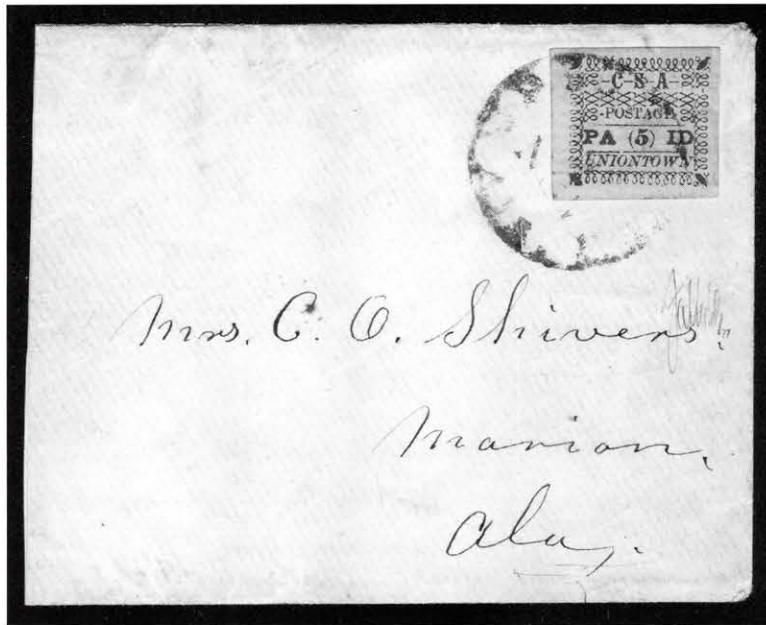 -C-S-A-
-POSTAGE-
PA (5) ID
UNIONTOWN
Mrs. C. O. Shivers.
Marion,
Ala,.